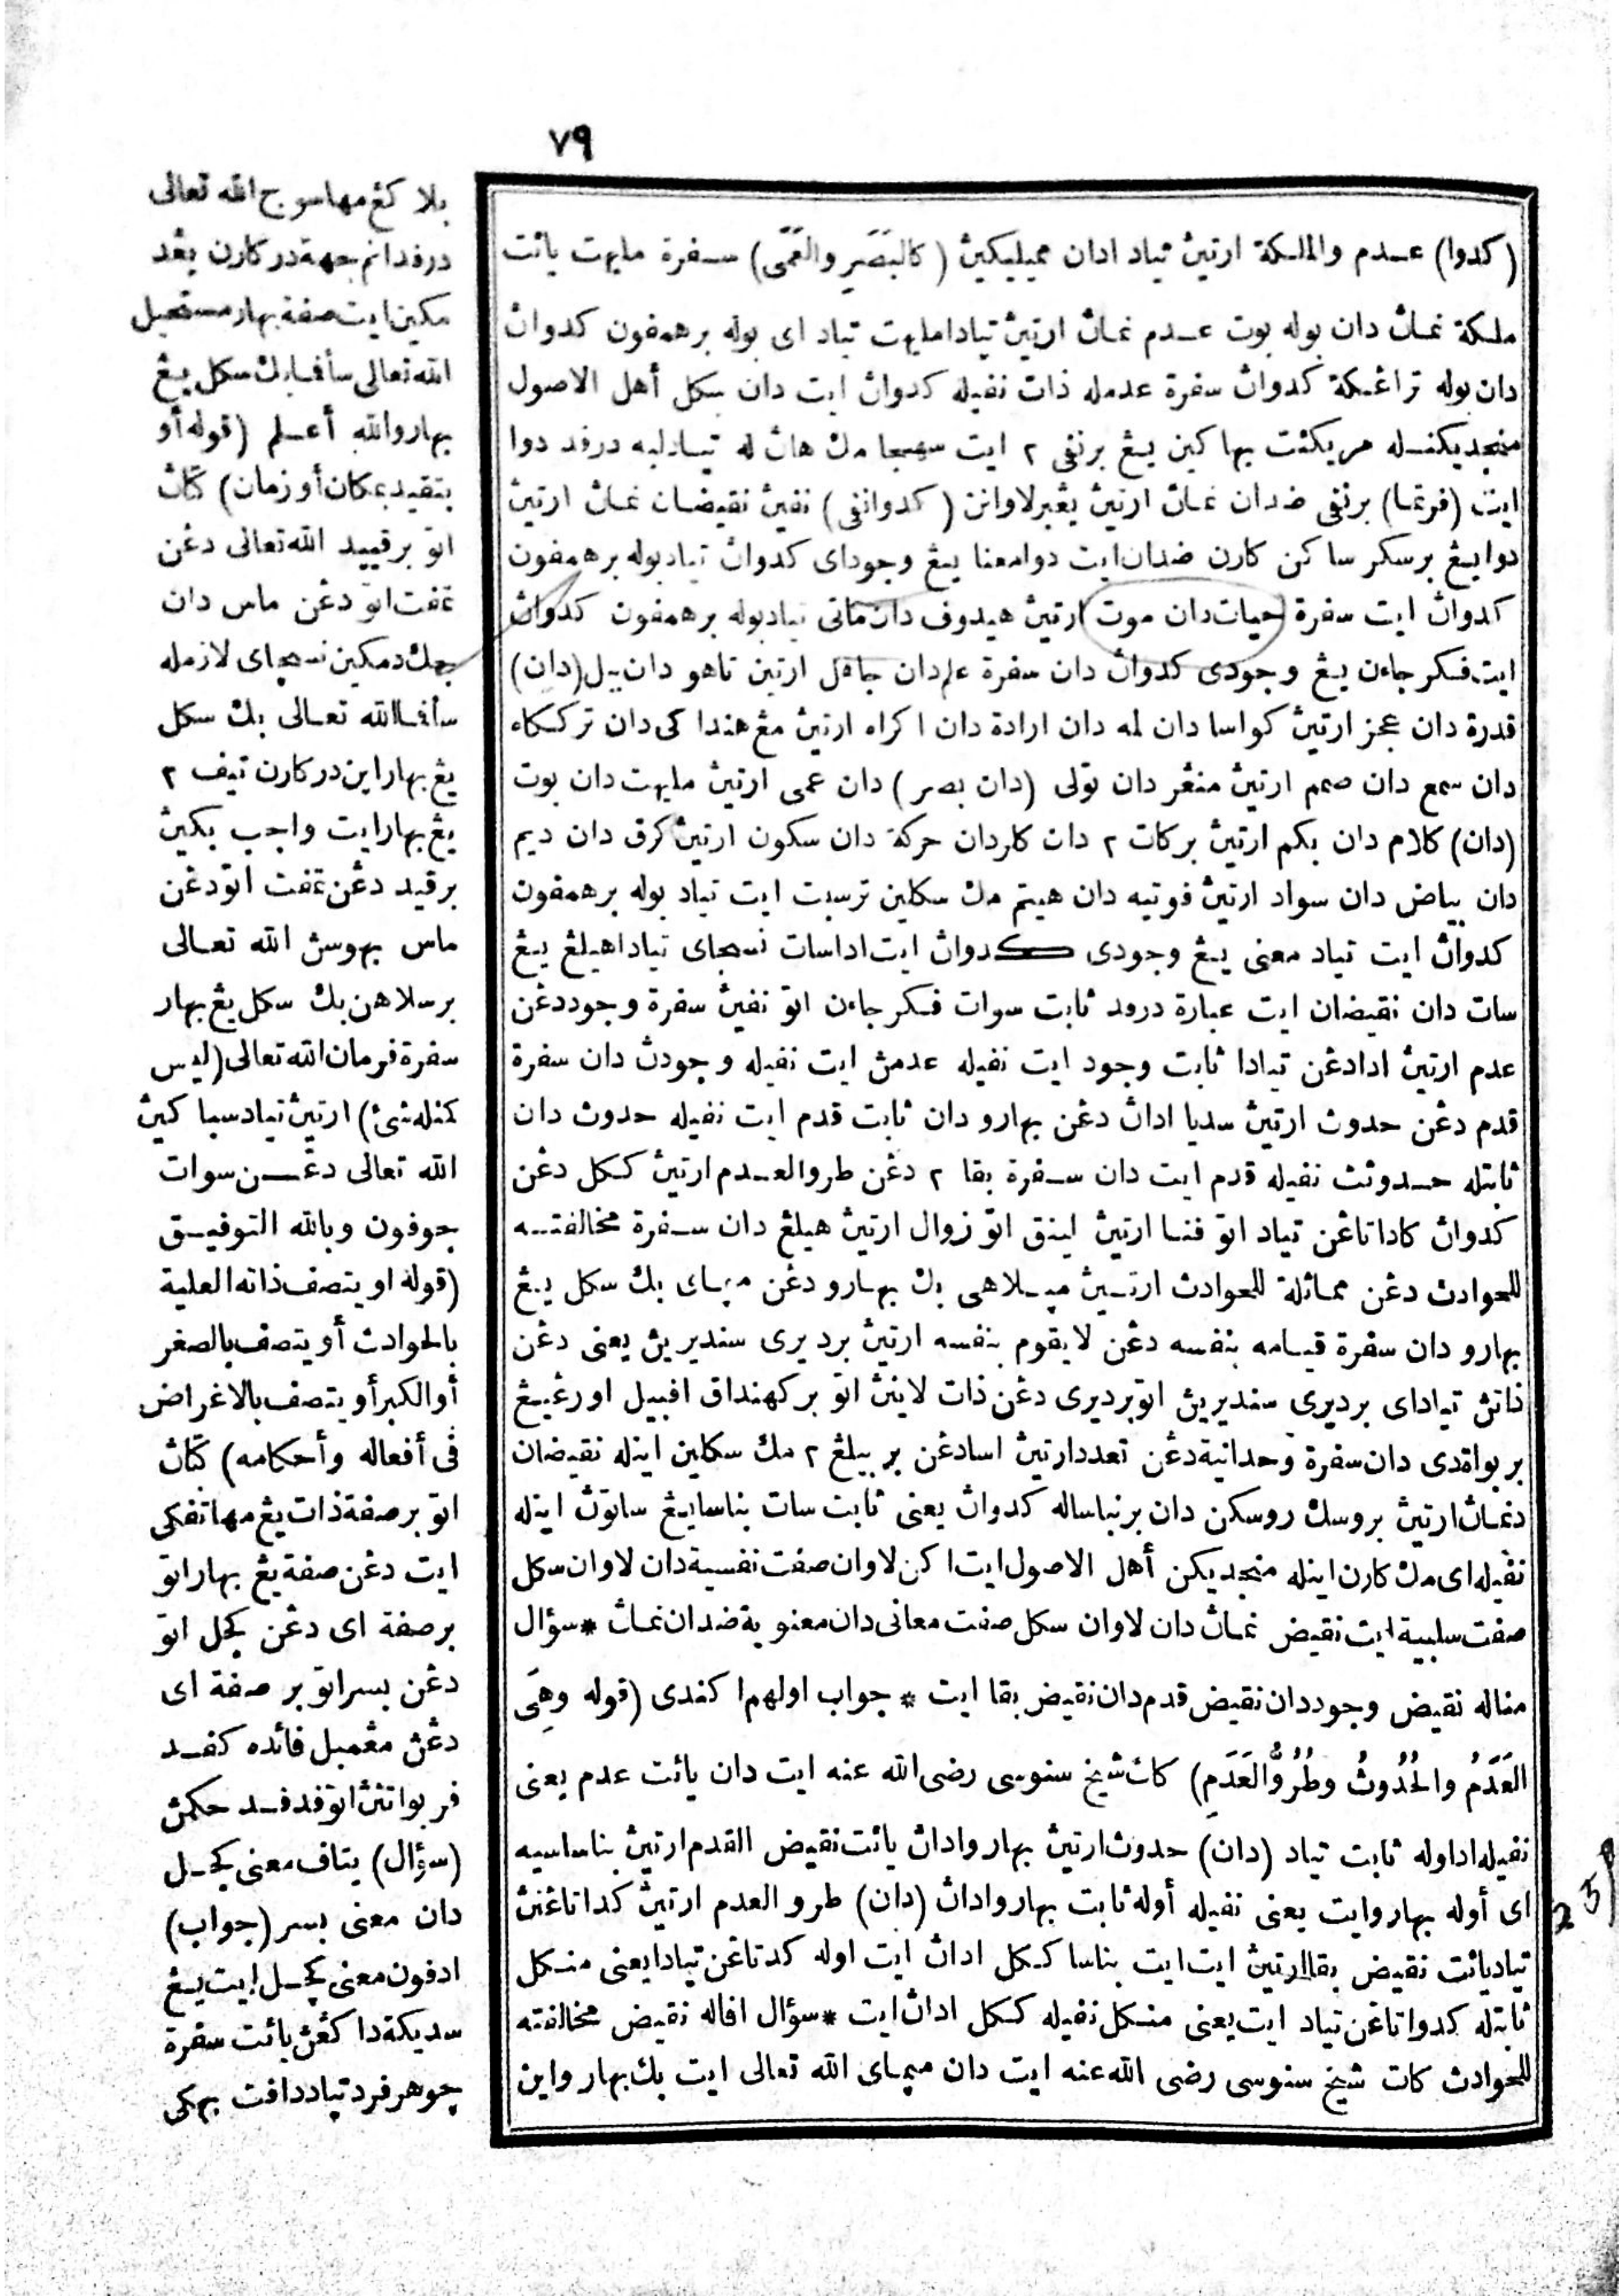 ٧٩
(كدوا) عدم والملكة ارتيڽ تياد ادان مميليكيڽ (كالبَصَرِ والعَمَى) سفرة مليهت يائت
ملكة نماڽ دان بوله بوت عدم نماڽ ارتيڽ تيادا مليهت تياد اى بوله برهمفون كدواڽ
دان بوله تراڠكة كدواڽ سفرة عدمله ذات نفيله كدواڽ ايت دان سكل أهل الاصول
منجديكنله مريكئت بها كين يڠ برنفى ٢ ايت مك هاڽ له تيادله درفد دوا
ايت (فرتما) برنفى ضدان نماڽ ارتيڽ يڠبرلاوانن (كدوانفى) نفيڽ نقيضان نماڽ ارتيڽ
دوا يڠ برسكر ساكن كارن ضدان ايت دوامعنا يڠ وجوداى كدواڽ تياد بوله برهمفون
كدواڽ ايت سفرة حيات دان موت ارتيڽ هيدوف دان ماتى تياد بوله برهمفون كدواڽ
ايت فكر جاءن يڠ وجودى كدواڽ دان سفرة علم دان جاهل ارتين تاهو دان (دان)
قدرة دان عجز ارتيڽ كواسا دان لمه دان ارادة دان اكراه ارتيڽ مڠهندا كى دان تركاه
دان سمع دان صمم ارتيڽ منڠر دان تولى (دان بصر) دان عمى ارتيڽ مليهت دان بوت
(دان) كلام دان بكم ارتيڽ بركات ٢ دان كلو دان حركة دان سكون ارتيڽ كرق دان ديم
دان بياض دان سواد ارتيڽ فوتيه دان هيتم مك سكلين ترسبت ايت تياد بوله برهمفون
كدواڽ ايت تياد معنى يڠ وجودى كدواڽ ايت اداسات نسجاى تياد اهيلڠ يڠ
سات دان نقيضان ايت عبارة درفد ثابت سوات فكر جاءن اتو نفيڽ سفرة وجود دڠن
عدم ارتيڽ ادادڠن تيادا ثابت وجود ايت نفيله عدمڽ ايت نفيله وجودڽ دان سفرة
قدم دڠن حدوث ارتيڽ سديا اداڽ دڠن بهارو دان ثابت قدم ايت نفيله حدوث دان
ثابتله حدوثڽ نفيله قدم ايت دان سفرة بقا ٢ دڠن طروالعدم ارتيڽ ككل دڠن
كدواڽ كاداتاڠن تياد اتو فنا ارتيڽ لينق اتو زوال ارتيڽ هيلڠ دان سفرة مخالفته
للحوادث دڠن مماثلة للحوادث ارتيڽ مپلاهى بك بهارو دڠن مپاى بك سكل يڠ
بهارو دان سفرة قيامه بنفسه دڠن لايقوم بنفسه ارتيڽ برديرى سنديرين يعنى دڠن
ذاتڽ تياداى برديرى سنديرين اتو برديرى دڠن ذات لاينڽ اتو بركهنداق افبيل اورڠيڠ
بربواة دى دان سفرة وحدانية دڠن تعدد ارتيڽ اسادڠن بر بيلڠ ٢ مك سكلين اينله نقيضان
دنماڽ ارتيڽ بروسك روسكن دان برنباساله كدواڽ يعنى ثابت سات بناسايڠ ساتوڽ اينله
نفيله اى مك كارن اينله منجديكن أهل الاصول ايت اكن لاوان صفت نفسية دان لاوان سكل
صفت سلبية ايت نقيض نماڽ دان لاوان سكل صفت معانى دان معنوية ضدان نماڽ * سؤال
مناله نقيض وجود دان نقيض قدم دان نقيض بقا ايت * جواب اولهم اكندى (قوله وهِىَ
العَدَمُ والحُدُوثُ وطُرُوُّ العَدَمِ) كات شيخ سنوسى رضى الله عنه ايت دان يائت عدم يعنى
نفيله اداوله ثابت تياد (دان) حدوث ارتيڽ بهارو اداڽ يائت نقيض القدم ارتيڽ بناساسيه
اى أوله بهارو ايت يعنى نفيله أوله ثابت بهارو اداڽ (دان) طرو العدم ارتيڽ كداتاڠنڽ
تياد يائت نقيض بقا ارتيڽ ايت ايت بناسا ككل اداڽ ايت اوله كدتاڠن تيادا يعنى منكل
ثابتله كدواتاڠن تياد ايت يعنى منكل نفيله ككل اداڽ ايت * سؤال افاله نقيض مخالفته
للحوادث كات شيخ سنوسى رضى الله عنه ايت دان ميپاى الله تعالى ايت بك بهارو اين
بلا كڠ مها سوچ الله تعالى
درفدانم جهة در كارن يڠد
مكين ايت صفة بهار مستحيل
الله تعالى سأفاءك سكل يڠ
بهارو والله أعلم (قوله أو
يتقيد بمكان أو زمان) كتاڽ
اتو برقييد الله تعالى دڠن
تمفت اتو دڠن ماس دان
جك دمكين نسجاى لازمله
سأفا الله تعالى بك سكل
يڠ بهارو اين در كارن تيف ٢
يڠ بهارو ايت واجب بكيڽ
برقيد دڠن تمفت اتو دڠن
ماس بهوسڽ الله تعالى
برسلاهن بك سكل يڠ بهار
سفرة فرمان الله تعالى (ليس
كمثله شئ) ارتيڽ تياد سبا كيڽ
الله تعالى دڠن سوات
جوفون وبالله التوفيق
(قوله او يتصف ذاته العلية
بالحوادث أو يتصف بالصغر
أو الكبر أو يتصف بالاغراض
فى أفعاله وأحكامه) كتاڽ
اتو برصفة ذات يڠ مها تڠكى
ايت دڠن صفة يڠ بهار اتو
برصفة اى دڠن كچل اتو
دڠن بسر اتو بر صفة اى
دڠن مڠمبل فائده كفد
فربواتنڽ اتو فد فد حكمڽ
(سؤال) بتاف معنى كچل
دان معنى بسر (جواب)
ادفون معنى كچل ايت يڠ
سديكة دا كڠڽ يائت سفرة
جوهر فرد تياد دافت بهكى